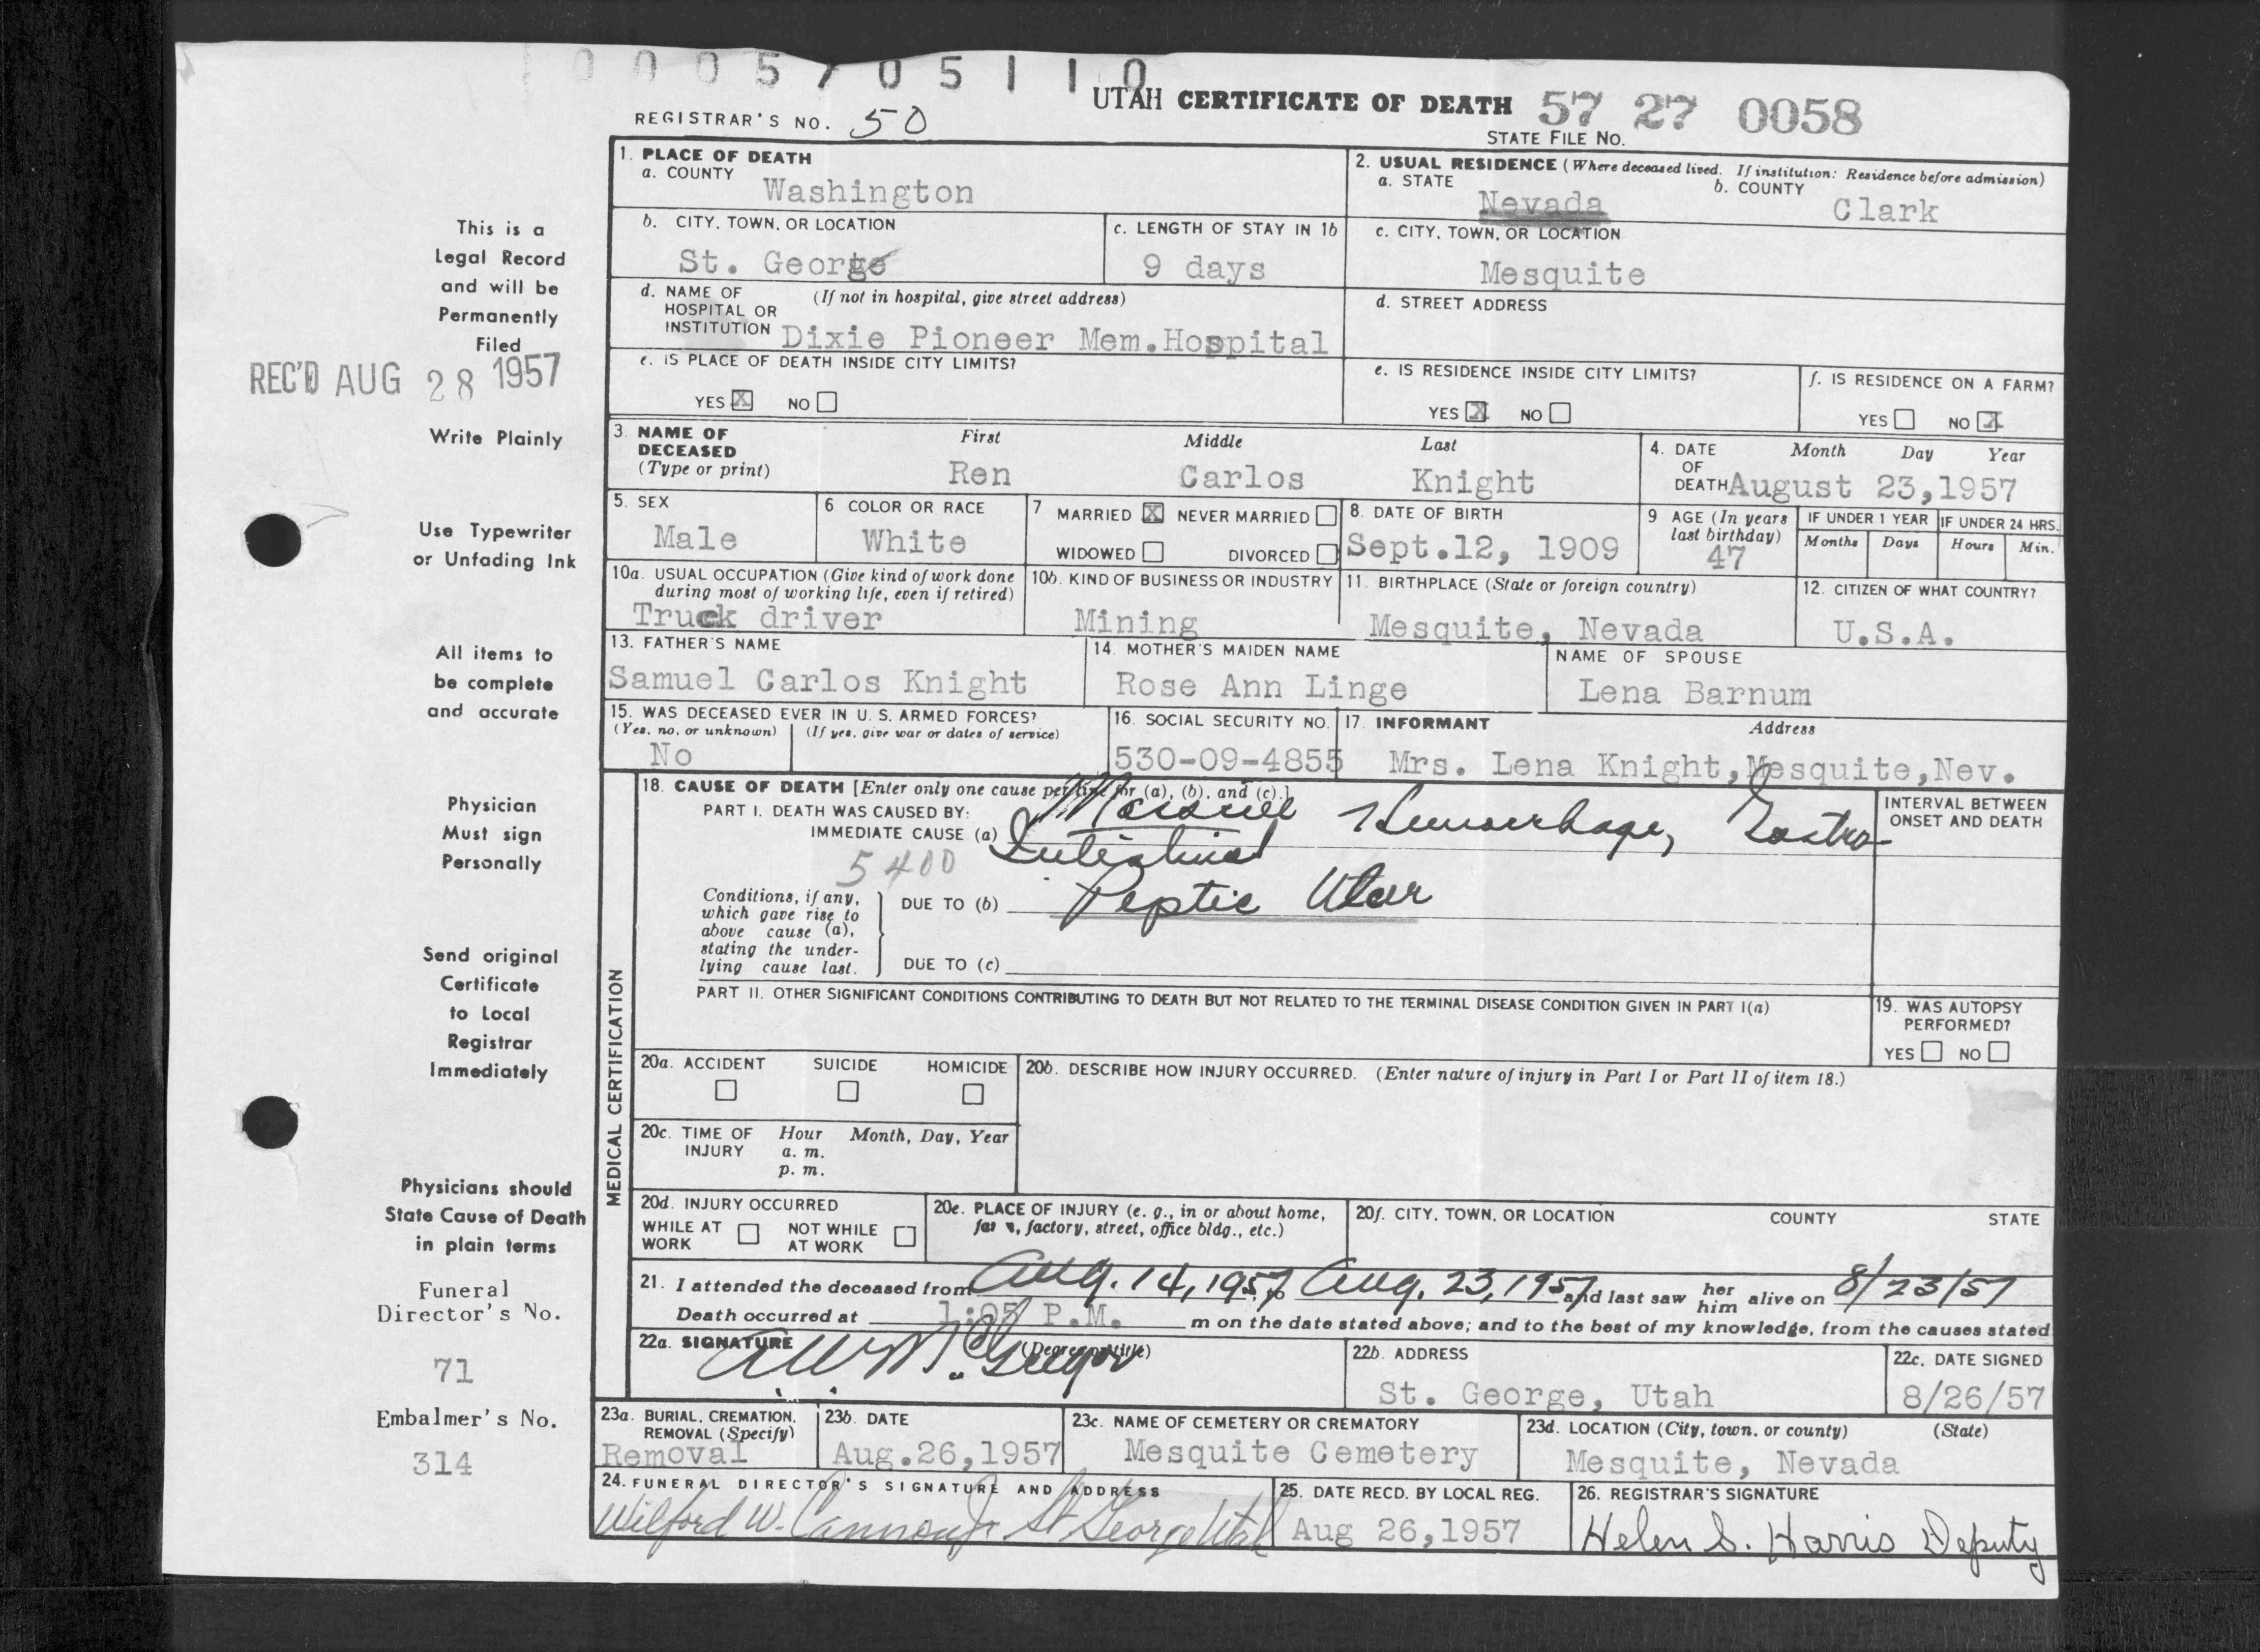 0005705110
UTAH CERTIFICATE OF DEATH 57 27 0058
REGISTRAR'S NO. 50
STATE FILE NO.
1. PLACE OF DEATH
a. COUNTY Washington
2. USUAL RESIDENCE (Where deceased lived. If institution: Residence before admission)
a. STATE Nevada b. COUNTY Clark
b. CITY, TOWN, OR LOCATION St. George
c. LENGTH OF STAY IN 1b 9 days
c. CITY, TOWN, OR LOCATION Mesquite
d. NAME OF HOSPITAL OR INSTITUTION (If not in hospital, give street address) Dixie Pioneer Mem.Hospital
d. STREET ADDRESS
e. IS PLACE OF DEATH INSIDE CITY LIMITS?
YES X NO
e. IS RESIDENCE INSIDE CITY LIMITS?
YES X NO
f. IS RESIDENCE ON A FARM?
YES NO X
3. NAME OF DECEASED (Type or print)
First Middle Last
Ren Carlos Knight
4. DATE OF DEATH Month Day Year
August 23,1957
5. SEX Male
6 COLOR OR RACE White
7 MARRIED X NEVER MARRIED
WIDOWED DIVORCED
8. DATE OF BIRTH Sept.12, 1909
9 AGE (In years last birthday) 47
IF UNDER 1 YEAR Months Days
IF UNDER 24 HRS. Hours Min.
10a. USUAL OCCUPATION (Give kind of work done during most of working life, even if retired)
Truck driver
10b. KIND OF BUSINESS OR INDUSTRY
Mining
11. BIRTHPLACE (State or foreign country)
Mesquite, Nevada
12. CITIZEN OF WHAT COUNTRY?
U.S.A.
13. FATHER'S NAME
Samuel Carlos Knight
14. MOTHER'S MAIDEN NAME
Rose Ann Linge
NAME OF SPOUSE
Lena Barnum
15. WAS DECEASED EVER IN U. S. ARMED FORCES?
(Yes, no, or unknown) (If yes, give war or dates of service)
No
16. SOCIAL SECURITY NO.
530-09-4855
17. INFORMANT Address
Mrs. Lena Knight,Mesquite,Nev.
MEDICAL CERTIFICATION
18. CAUSE OF DEATH [Enter only one cause per line for (a), (b), and (c).]
PART I. DEATH WAS CAUSED BY:
IMMEDIATE CAUSE (a) Massive Hemorrhage, Gastro-
Intestinal
5400
Conditions, if any, which gave rise to above cause (a), stating the underlying cause last.
DUE TO (b) Peptic Ulcer
DUE TO (c)
INTERVAL BETWEEN ONSET AND DEATH
PART II. OTHER SIGNIFICANT CONDITIONS CONTRIBUTING TO DEATH BUT NOT RELATED TO THE TERMINAL DISEASE CONDITION GIVEN IN PART I(a)
19. WAS AUTOPSY PERFORMED?
YES NO
20a. ACCIDENT SUICIDE HOMICIDE
20b. DESCRIBE HOW INJURY OCCURRED. (Enter nature of injury in Part I or Part II of item 18.)
20c. TIME OF INJURY Hour Month, Day, Year
a. m.
p. m.
20d. INJURY OCCURRED
WHILE AT WORK NOT WHILE AT WORK
20e. PLACE OF INJURY (e. g., in or about home, farm, factory, street, office bldg., etc.)
20f. CITY, TOWN, OR LOCATION COUNTY STATE
21. I attended the deceased from Aug. 14, 1957, to Aug. 23, 1957 and last saw her him alive on 8/23/57
Death occurred at 1:05 P.M. m on the date stated above; and to the best of my knowledge, from the causes stated
22a. SIGNATURE (Degree or title)
A W McGregor
22b. ADDRESS
St. George, Utah
22c. DATE SIGNED
8/26/57
23a. BURIAL, CREMATION, REMOVAL (Specify)
Removal
23b. DATE
Aug.26,1957
23c. NAME OF CEMETERY OR CREMATORY
Mesquite Cemetery
23d. LOCATION (City, town, or county) (State)
Mesquite, Nevada
24. FUNERAL DIRECTOR'S SIGNATURE AND ADDRESS
Wilford W. Cannon Jr St George Utah
25. DATE RECD. BY LOCAL REG.
Aug 26,1957
26. REGISTRAR'S SIGNATURE
Helen S. Harris Deputy
This is a
Legal Record
and will be
Permanently
Filed
REC'D AUG 28 1957
Write Plainly
Use Typewriter
or Unfading Ink
All items to
be complete
and accurate
Physician
Must sign
Personally
Send original
Certificate
to Local
Registrar
Immediately
Physicians should
State Cause of Death
in plain terms
Funeral
Director's No.
71
Embalmer's No.
314